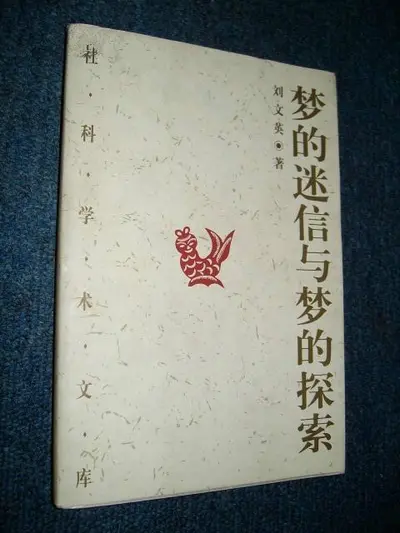 梦的迷信与梦的探索
刘文英◉著
社·科·学·术·文·库